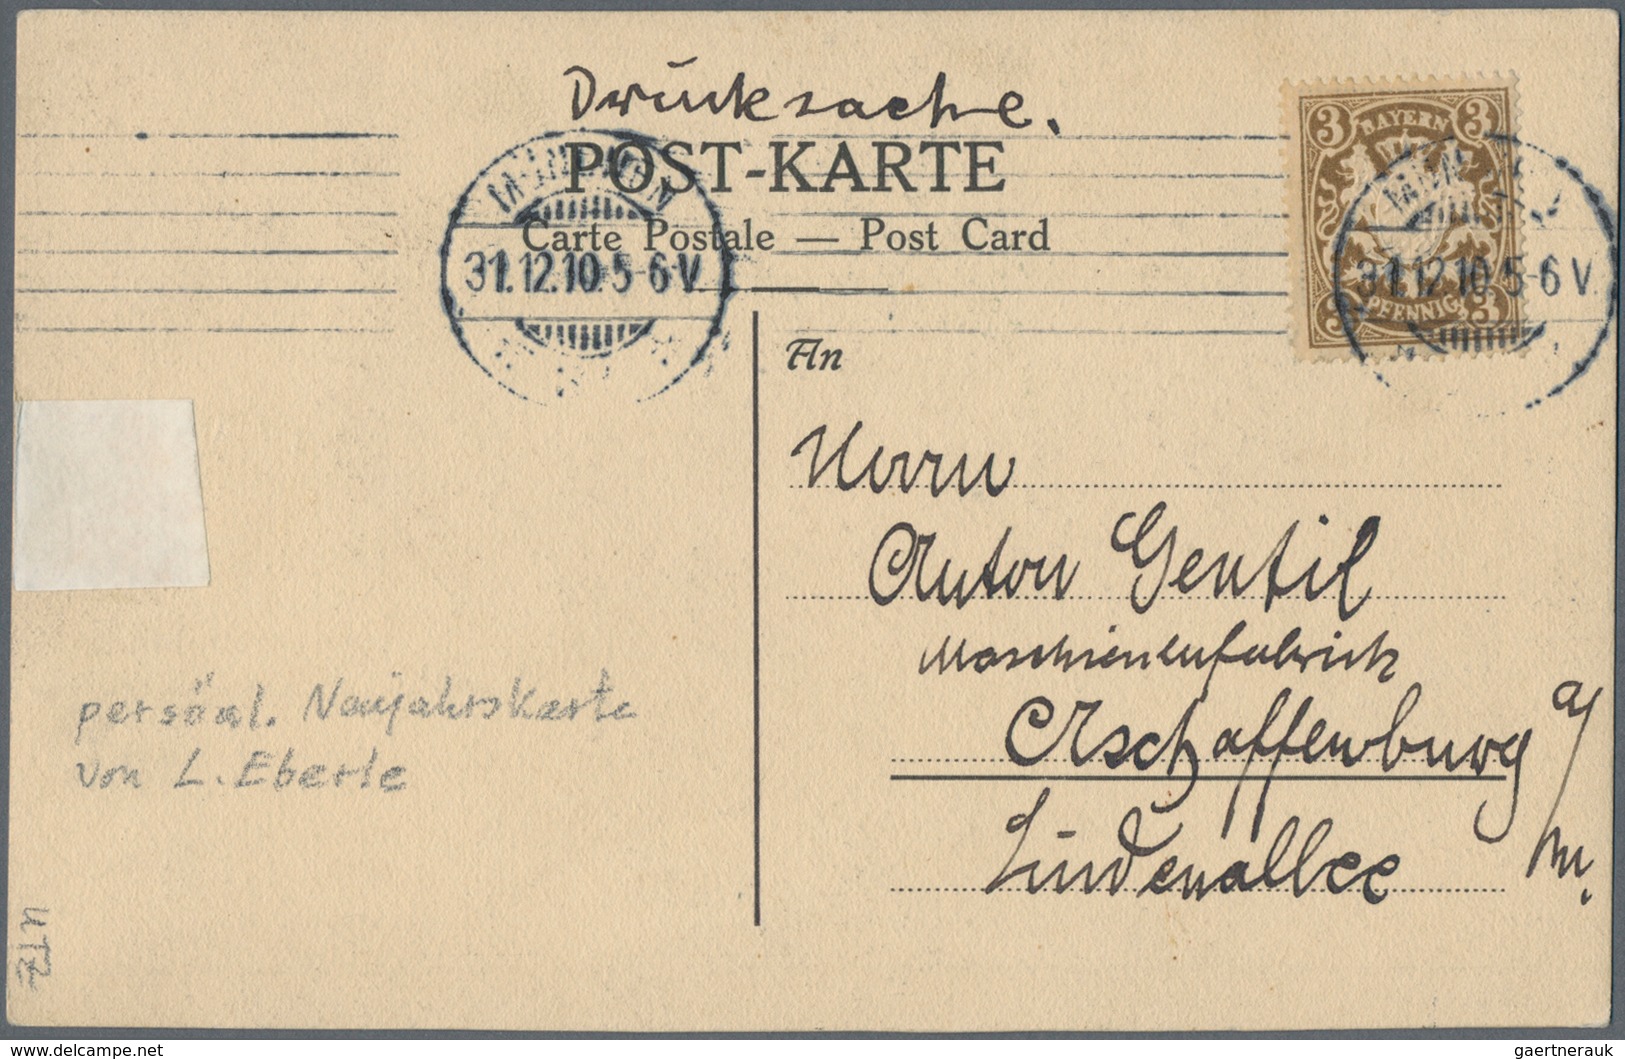 Drucksache.
POST-KARTE
Carte Postale — Post Card
MÜNCHEN
31.12.10. 5-6 V.
3 BAYERN 3
31.12.10. 5-6 V.
3 PFENNIG 3
An
Herrn
Anton Gentil
Maschienenfabrick
Aschaffenburg a/M.
Lindenallee
persönl. Neujahrskarte
von L. Eberle
www.delcampe.net
gaertnerauk